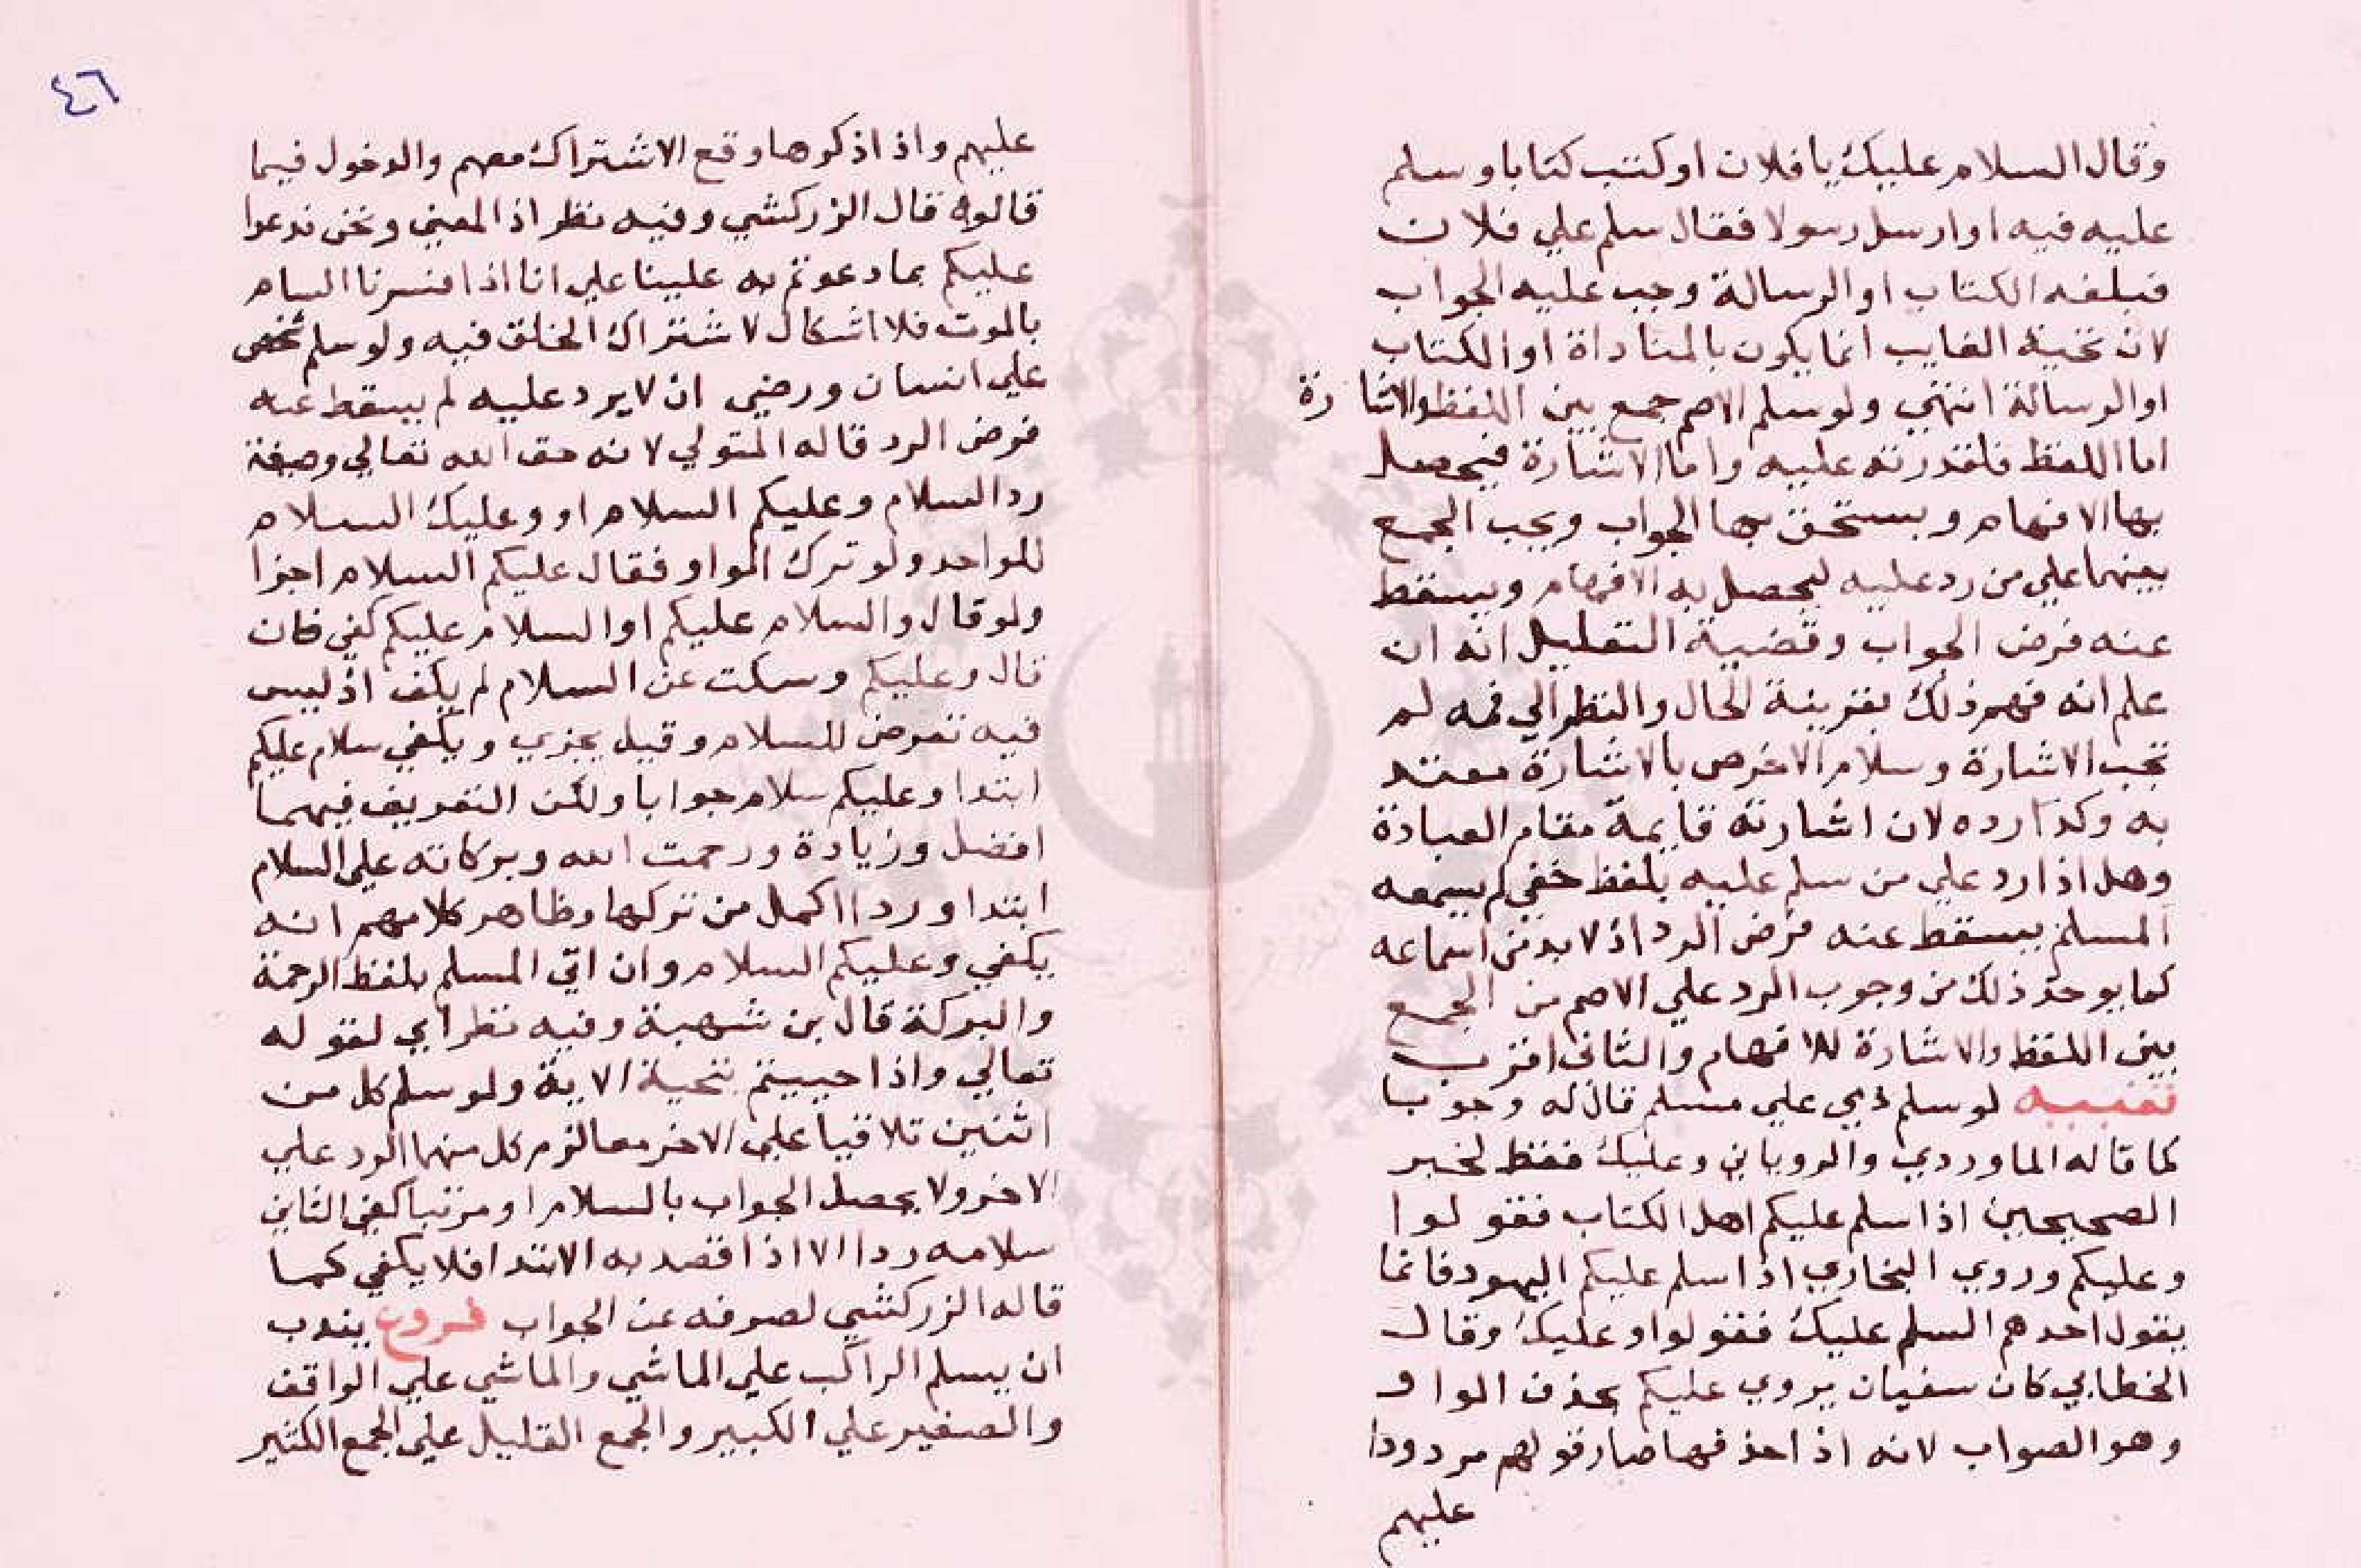 وقال السلام عليك يا فلان او كتب كتابا وسلم
عليه فيه او ارسل رسولا فقال سلم علي فلان
فبلغه الكتاب او الرسالة وجب عليه الجواب
لان تحية الغايب انما يكون بالمناداة او الكتاب
او الرسالة انتهي ولو سلم الاصم جمع بين اللفظ والاشارة
اما اللفظ فلقدرته عليه واما الاشارة فيحصل
بها الافهام ويستحق بها الجواب ويجب الجمع
بينهما علي من رد عليه ليحصل به الافهام ويسقط
عنه فرض الجواب وقضية التعليل انه ان
علم انه فهم ذلك بقرينة الحال والنظر الي فمه لم
تجب الاشارة وسلام الاخرص بالاشارة معتد
به وكذا رده لان اشارته قايمة مقام العبادة
وهل اذا رد علي من سلم عليه بلفظ خفي لم يسمعه
المسلم يسقط عنه فرض الرد اذ لا بد من اسماعه
كما يوخذ ذلك من وجوب الرد علي الاصم من الجمع
بين اللفظ والاشارة للافهام والثاني اقرب
تنبيه لو سلم ذمي علي مسلم قال له وجوبا
كما قاله الماوردي والروياني وعليك فقط لخبر
الصحيحين اذا سلم عليكم اهل الكتاب فقولوا
وعليكم وروي البخاري اذا سلم عليكم اليهود فانما
يقول احدهم السلم عليك فقولوا وعليك وقال
الخطابي كان سفيان يروي عليكم بحذف الواو
وهو الصواب لانه اذا حذفها صار قولهم مردودا
عليهم
٤٦
عليهم واذا ذكوها وقع الاشتراك معهم والدخول فيما
قالوه قال الزركشي وفيه نظر اذ المعني ونحن ندعوا
عليكم بما دعوتم به علينا علي انا اذا فسرنا السام
بالموت فلا اشكال لاشتراك الخلق فيه ولو سلم شخص
علي انسان ورضي ان لا يرد عليه لم يسقط عنه
فرض الرد قاله المتولي لانه حق الله تعالي وصيغة
رد السلام وعليكم السلام او وعليك السلام
للواحد ولو ترك الواو فقال عليكم السلام اجزا
ولو قال والسلام عليكم او السلام عليكم كفي فان
قال وعليكم وسكت عن السلام لم يكف اذ ليس
فيه تعرض للسلام وقيل يجزي ويكفي سلام عليكم
ابتدا وعليكم سلام جوابا ولكن التعريف فيهما
افضل وزيادة ورحمت الله وبركاته علي السلام
ابتدا وردا اكمل من تركها وظاهر كلامهم انه
يكفي وعليكم السلام وان اتي المسلم بلفظ الرحمة
والبركة قال بن شهبة وفيه نظر اي لقوله
تعالي واذا حييتم بتحية الاية ولو سلم كل من
اثنين تلاقيا علي الاخر معا لزم كل منهما الرد علي
الاخر ولا يحصل الجواب بالسلام او مرتبا كفي الثاني
سلامه ردا الا اذا قصد به الابتدا فلا يكفي كما
قاله الزركشي لصرفه عن الجواب فروع يندب
ان يسلم الراكب علي الماشي والماشي علي الواقف
والصغير علي الكبير والجمع القليل علي الجمع الكثير